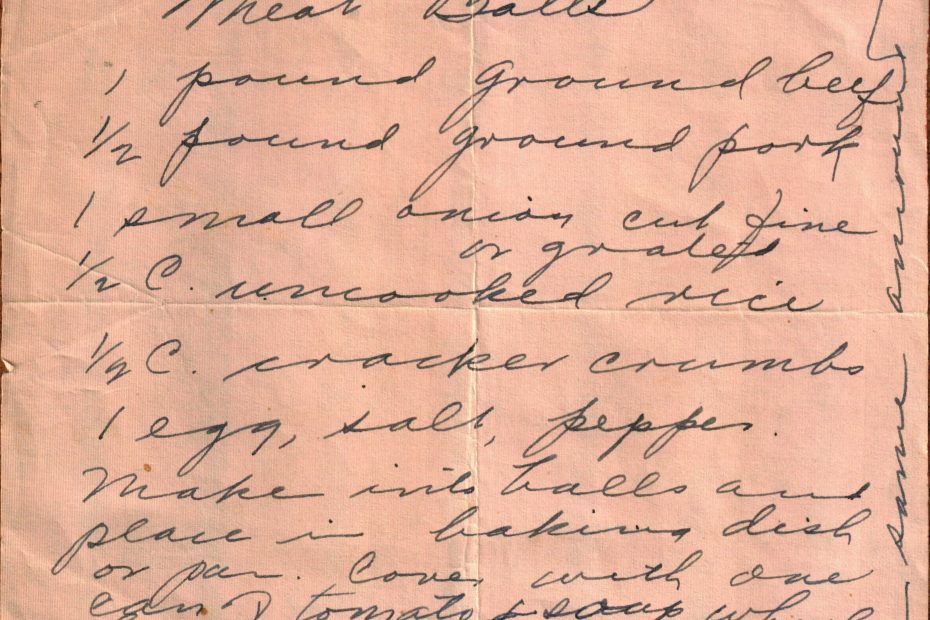 Meat Balls
1 pound ground beef
1/2 pound ground pork
1 small onion cut fine
or grated
1/2 C. uncooked rice
C. cracker crumbs
1 egg, salt, pepper.
Make into balls and
place in baking dish
or pan. Cover with one
can of tomato soup
same amount